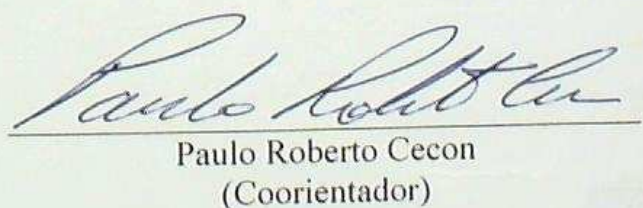 Paulo Robto Cecon
Paulo Roberto Cecon
(Coorientador)